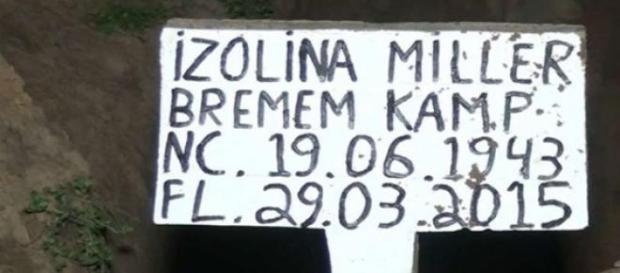 İZOLİNA MILLER
BREMEM KAMP
NC. 19.06.1943
FL. 29.03.2015